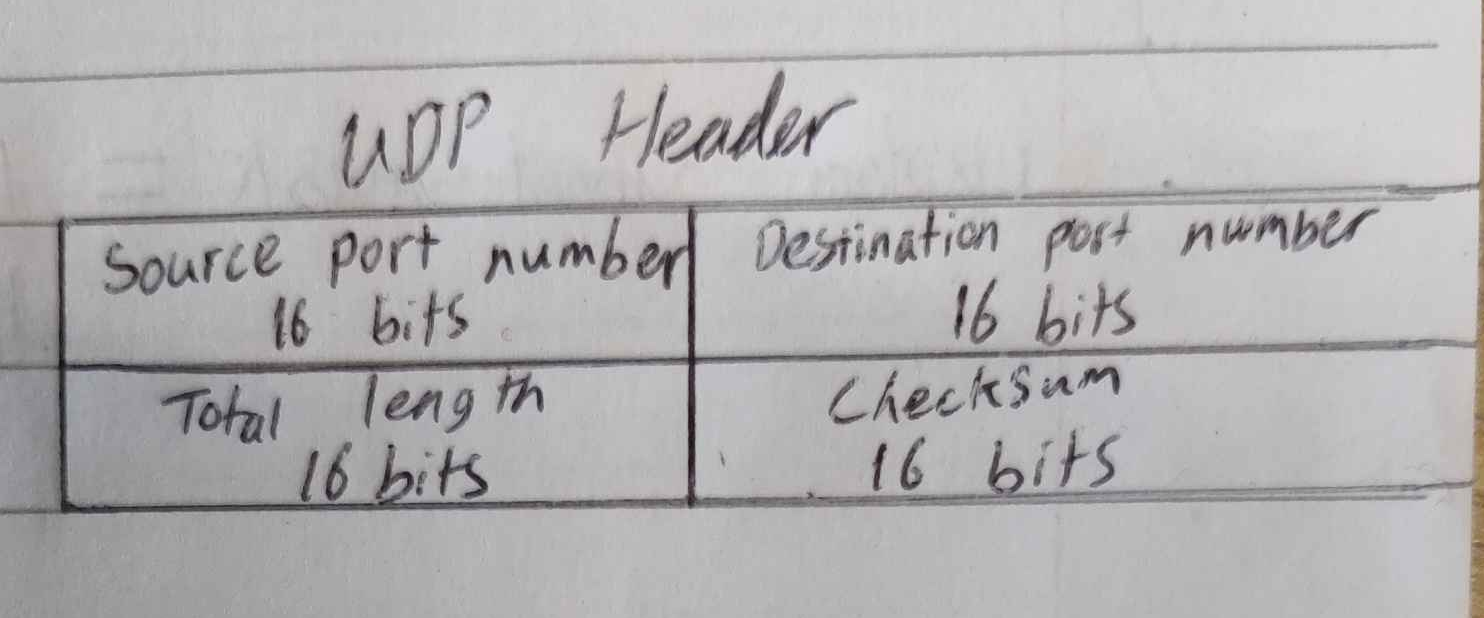 UDP Header
Source port number
16 bits
Destination port number
16 bits
Total length
16 bits
Checksum
16 bits